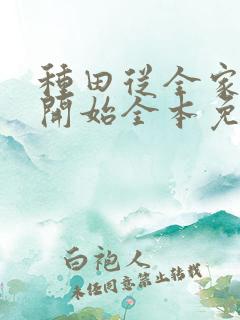 種田從全家
開始全本免
白袍人
未經同意禁止轉載